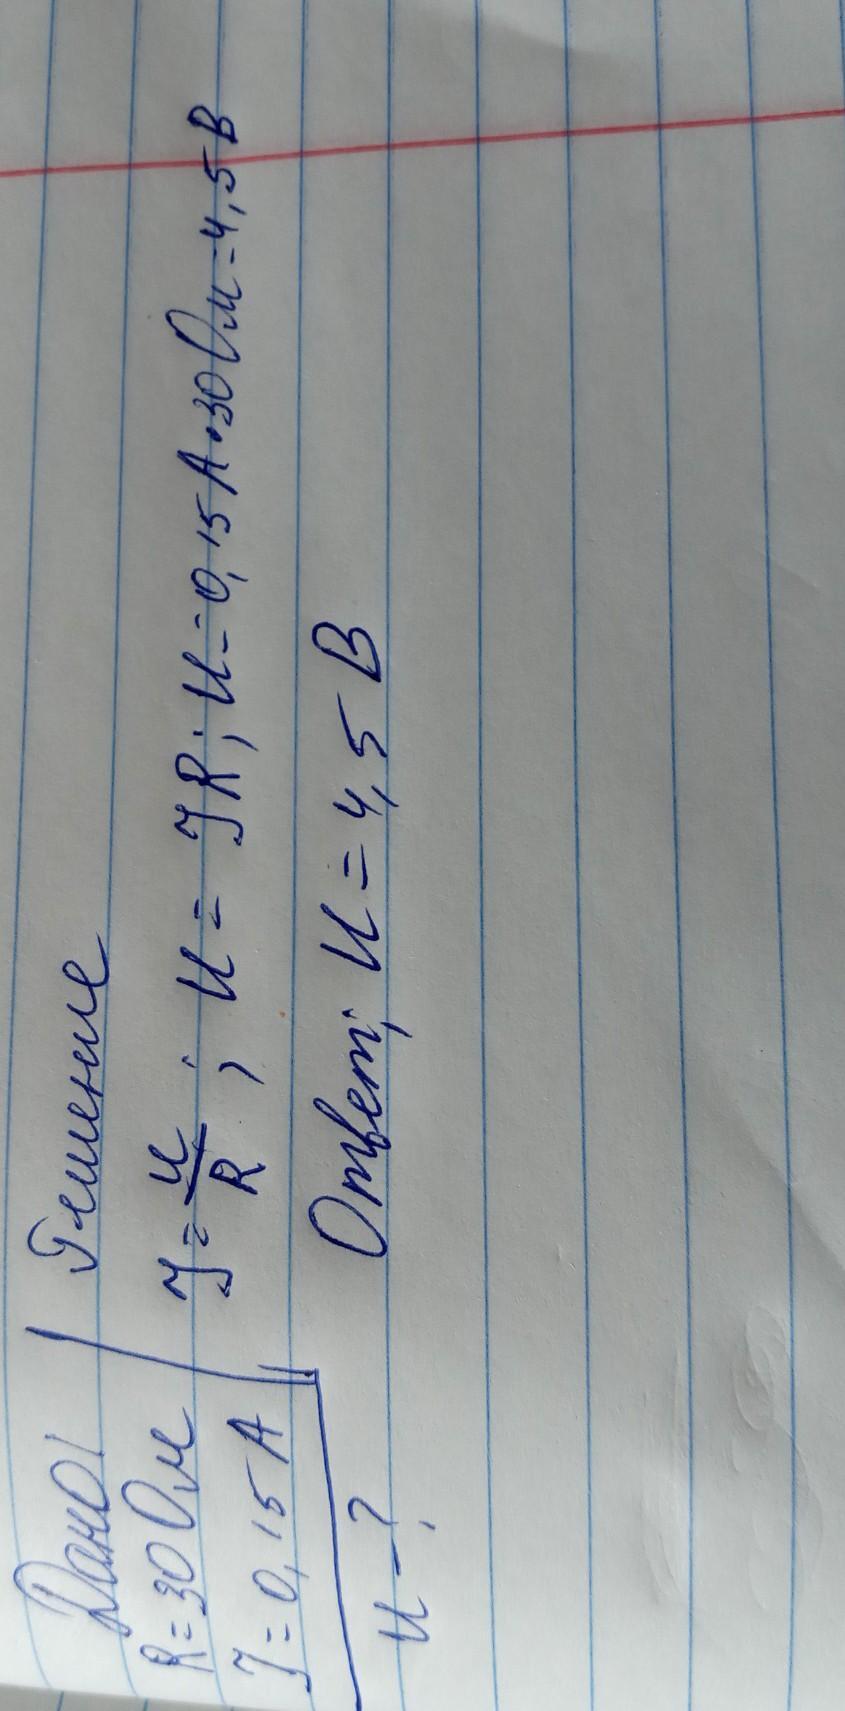 Дано:
R=30 Ом
J=0,15 А
U-?
Решение
J=U/R; U=JR; U=0,15А·30Ом=4,5В
Ответ; U=4,5 В